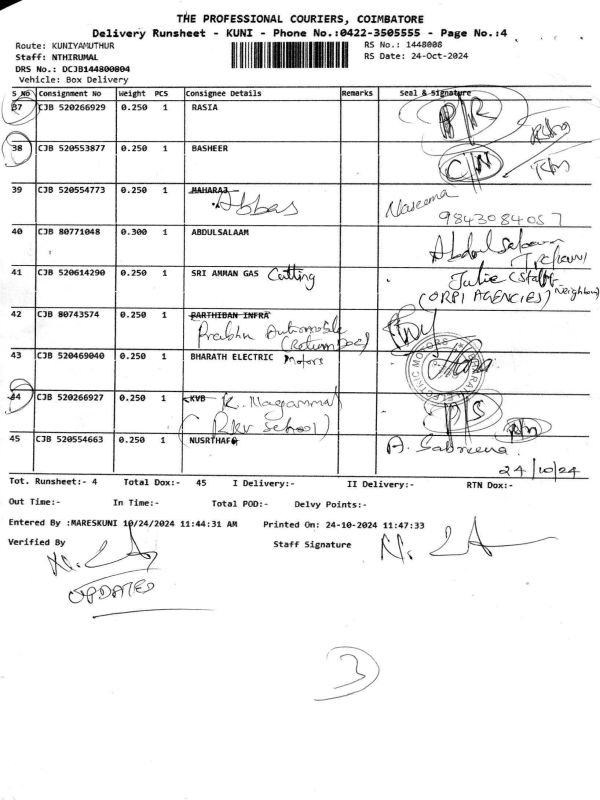 THE PROFESSIONAL COURIERS, COIMBATORE
Delivery Runsheet - KUNI - Phone No.:0422-3505555 - Page No.:4
Route: KUNIYAMUTHUR
RS No.: 1448008
Staff: NTHIRUMAL
RS Date: 24-Oct-2024
DRS No.: DCJB144800804
Vehicle: Box Delivery
S No Consignment No Weight PCS Consignee Details Remarks Seal & Signature
37 CJB 520266929 0.250 1 RASIA
38 CJB 520553877 0.250 1 BASHEER
C/N
39 CJB 520554773 0.250 1 MAHARAJ
Abbas
Naseema
9843084057
40 CJB 80771048 0.300 1 ABDULSALAAM
Abdul Salaam
41 CJB 520614290 0.250 1 SRI AMMAN GAS Cutting
Julie (Staff
(ORPI AGENCIES) Neighbour)
42 CJB 80743574 0.250 1 PARTHIBAN INFRA
Prabhu Automobile
(Return Doc)
43 CJB 520469040 0.250 1 BHARATH ELECTRIC Motors
44 CJB 520266927 0.250 1 KVB K. Nagammal
(RKV School)
45 CJB 520554663 0.250 1 NUSRTHAF
A. Sabreena.
24/10/24
Tot. Runsheet:- 4 Total Dox:- 45 I Delivery:- II Delivery:- RTN Dox:-
Out Time:- In Time:- Total POD:- Delvy Points:-
Entered By :MARESKUNI 10/24/2024 11:44:31 AM Printed On: 24-10-2024 11:47:33
Verified By Staff Signature
UPDATED
3